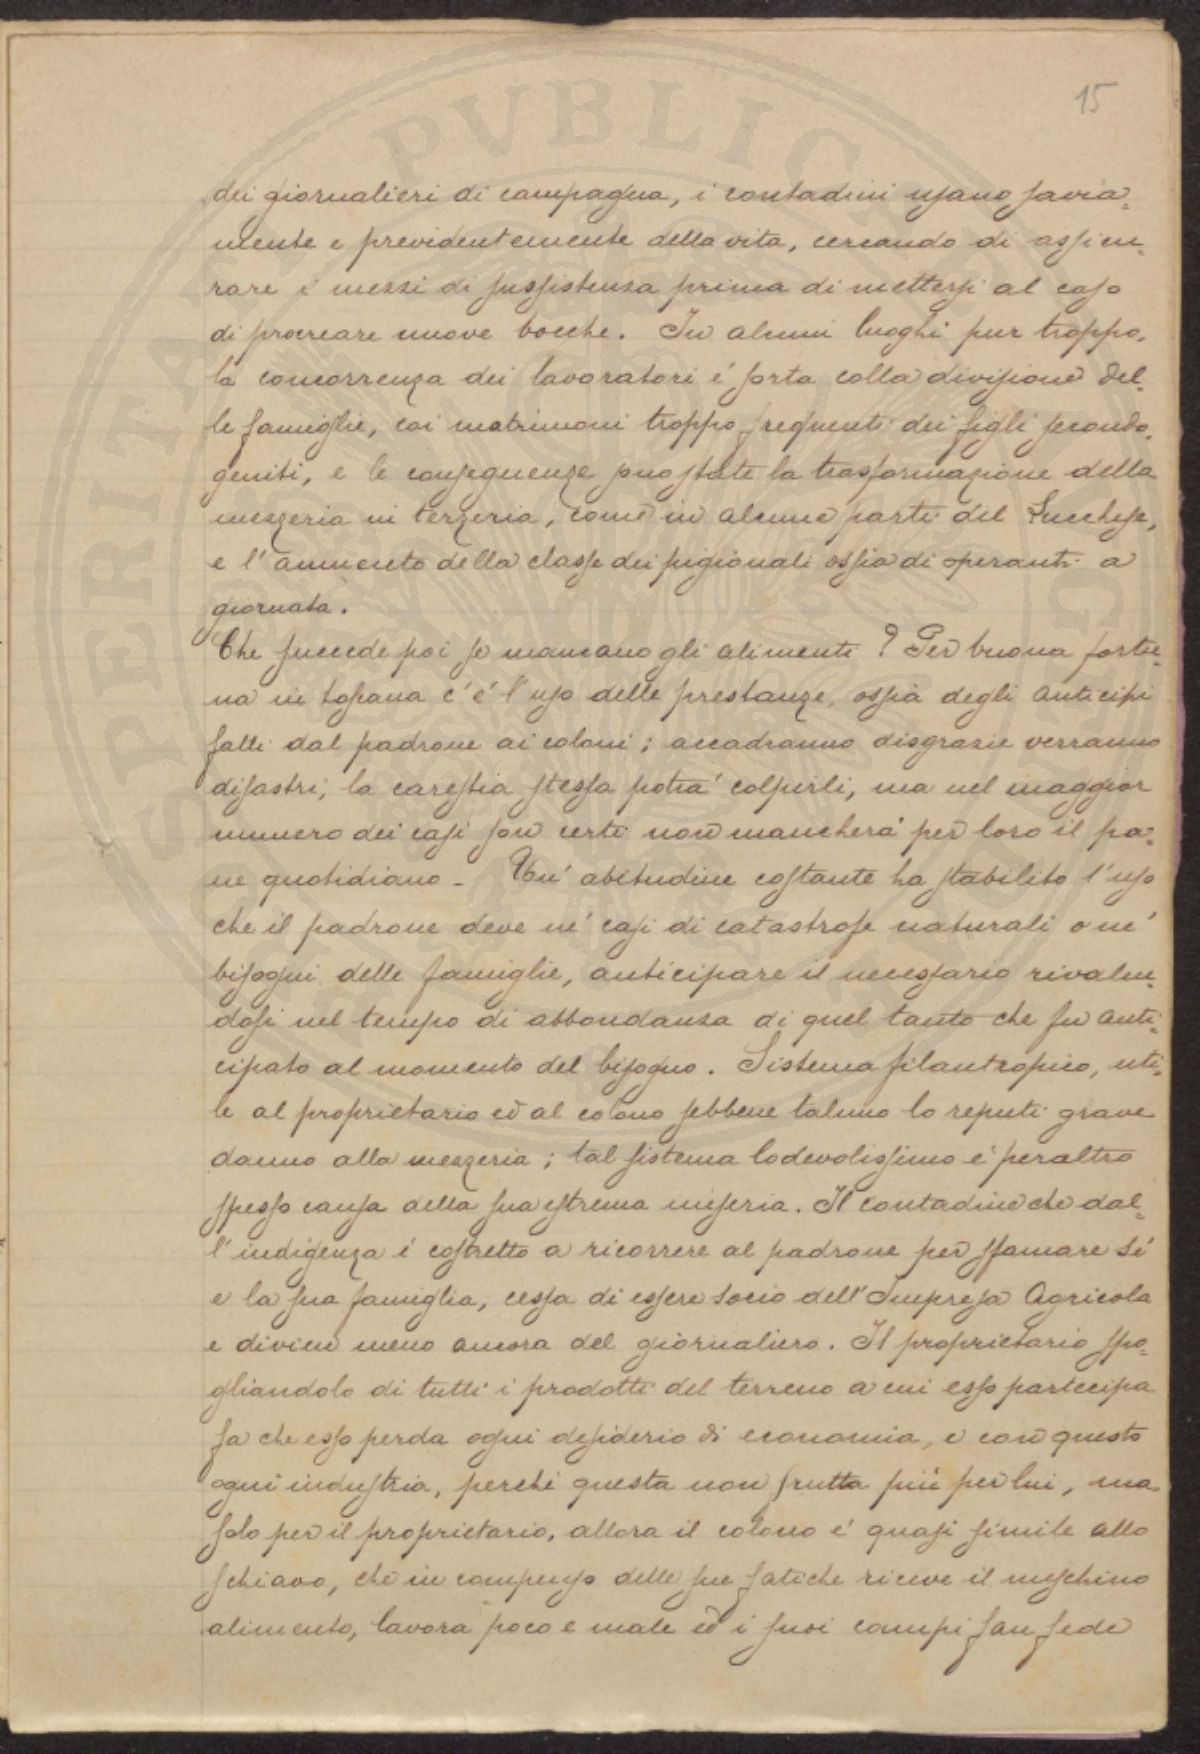 15
dei giornalieri di campagna, i contadini usano savia=
mente e previdentemente della vita, cercando di assicu=
rare i mezzi di sussistenza prima di mettersi al caso
di procreare nuove bocche. In alcuni luoghi pur troppo,
la concorrenza dei lavoratori é sorta colla divisione del=
le famiglie, coi matrimoni troppo frequenti dei figli secondo=
geniti, e le conseguenze sono state la trasformazione della
mezzeria in terzeria, come in alcune parti del Lucchese,
e l'aumento della classe dei pigionali ossia di operanti a
giornata.
Che succede poi se mancano gli alimenti? Per buona fortu=
na in tosçana c'é l'uso delle prestanze, ossia degli anticipi
fatti dal padrone ai coloni; accadranno disgrazie verranno
disastri, la carestia stessa potrá colpirli, ma nel maggior
numero dei casi son certi non mancherá per loro il pa=
ne quotidiano - Un' abitudine costante ha stabilito l'uso
che il padrone deve ne' casi di catastrofe naturali o ne'
bisogni delle famiglie, anticipare il necessario rivalen=
dosi nel tempo di abbondanza di quel tanto che fu anti=
cipato al momento del bisogno. Sistema filantropico, uti=
le al proprietario ed al colono sebbene taluno lo reputi grave
danno alla mezzeria; tal sistema lodevolissimo é peraltro
spesso causa della sua estrema miseria. Il contadino che dal=
l'indigenza é costretto a ricorrere al padrone per sfamare sé
e la sua famiglia, cessa di essere socio dell'Impresa Agricola
e divien meno ancora del giornaliero. Il proprietario spo=
gliandolo di tutti i prodotti del terreno a cui esso partecipa
fa che esso perda ogni desiderio di economia, e con questo
ogni industria, perché questa non frutta piú per lui, ma
solo per il proprietario, allora il colono é quasi simile allo
schiavo, che in compenso delle sue fatiche riceve il meschino
alimento, lavora poco e male ed i suoi campi fan fede